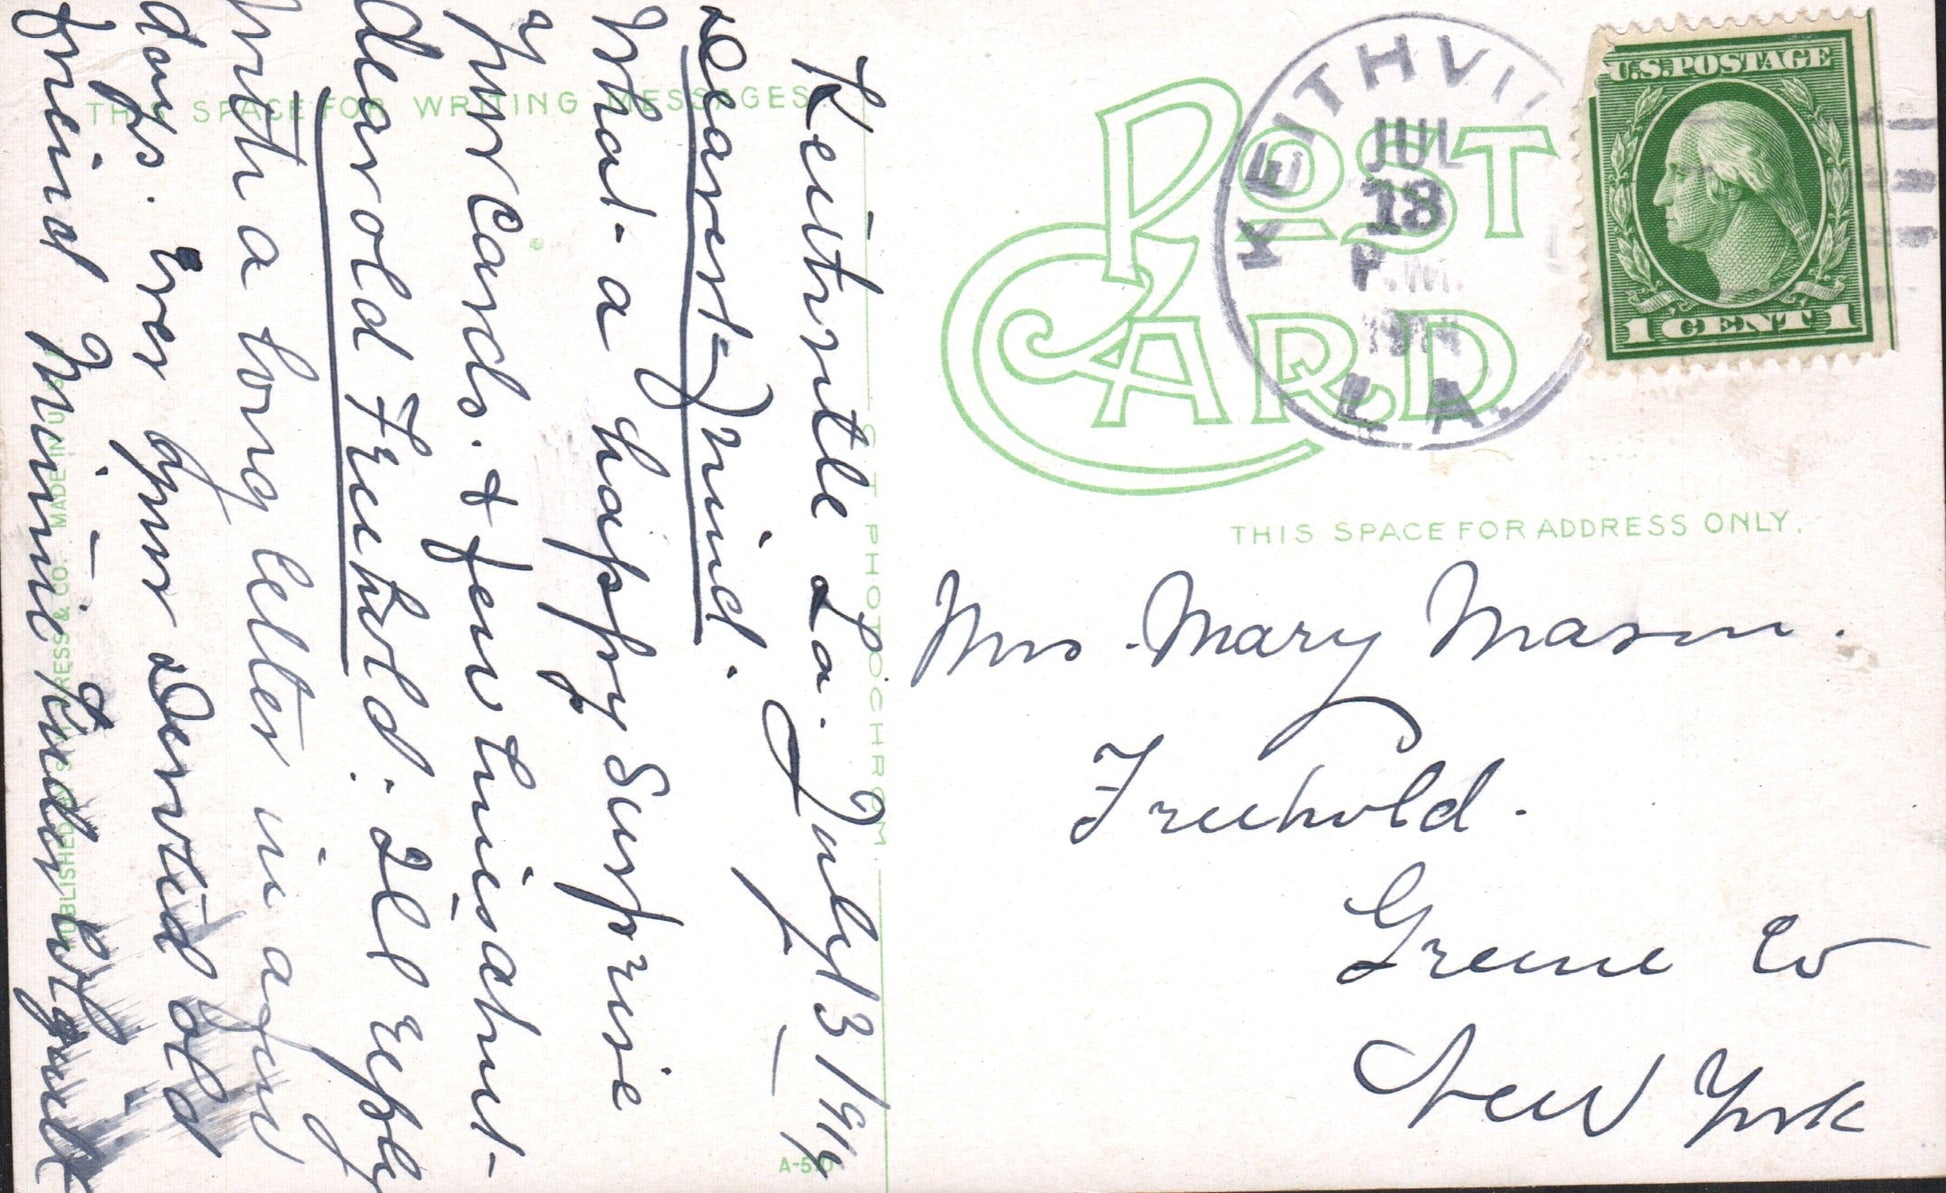 Keithville La. July 13/1914
Dearest Friend.
What a happy Surprise
your Cards. & few lines about
dear old Freehold. I'll reply
with a long letter in a few
days. Ever your Devoted old
freind Minnie
THIS SPACE FOR WRITING MESSAGES
PUBLISHED BY S. H. KRESS & CO. MADE IN U.S.A.
C.T. PHOTOCHROM
A-5
POST CARD
KEITHVI
JUL
13
P.M.
1914
LA.
U.S. POSTAGE
1 CENT 1
THIS SPACE FOR ADDRESS ONLY.
Mrs. Mary Mason.
Freehold.
Greene Co
New York